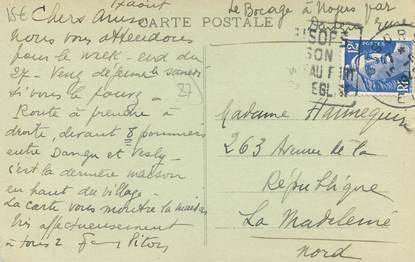 17 août
Le Bocage à Noyers par
15€ Chers Amis
CARTE POSTALE
Nous vous attendons
pour le week-end du
27 - Venez déjeuner samedi
si vous le pouvez -
Route à prendre à
droite, devant 8 pommiers
entre Dangu et Vesly -
c'est la dernière maison
en haut du village -
La carte vous montre la maison
bis affectueusement
à tous 2
Pitois
27
GISORS
SON
EGL
12F
POSTES
Madame Hannequin
263 Avenue de la
République
La Madeleine
Nord